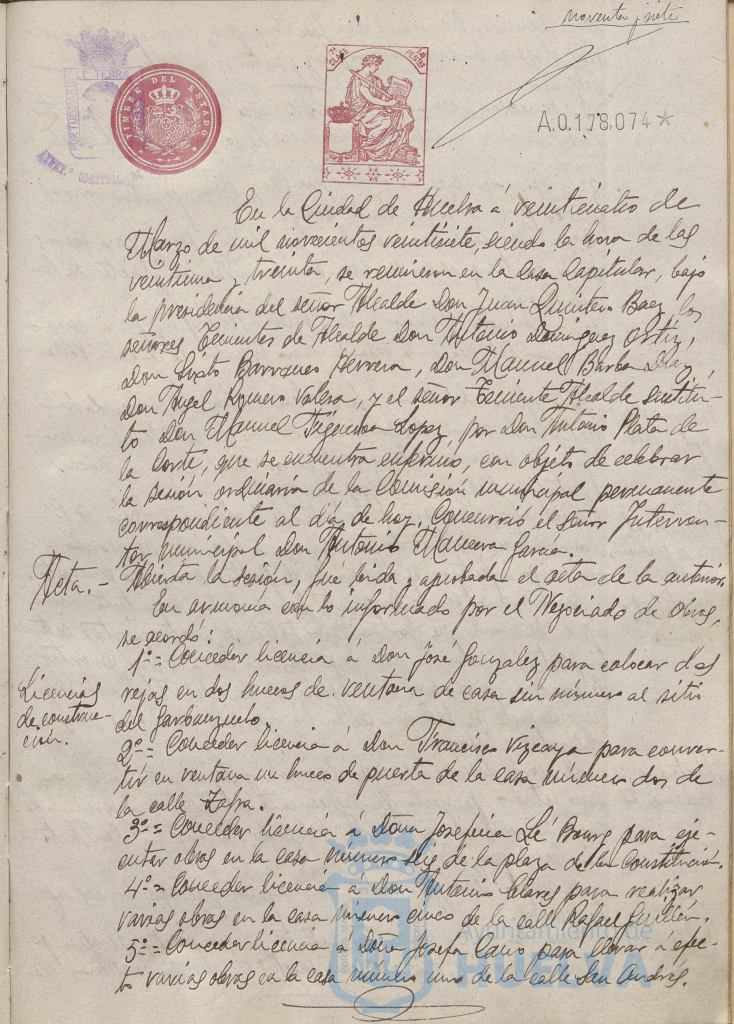 noventa y siete
TIMBRE DEL ESTADO
7ª CLASE
PESETAS
A.0.178.074*
En la Ciudad de Huelva á veinticuatro de
Marzo de mil novecientos veintisiete, siendo la hora de las
veintiuna y treinta, se reunieron en la Casa Capitular, bajo
la presidencia del señor Alcalde Don Juan Quintero Baez, los
señores Tenientes de Alcalde Don Antonio Dominguez Ortiz,
Don Sixto Barranco Herrera, Don Manuel Barba Diaz,
Don Angel Romero Valera, y el señor Teniente Alcalde sustitu-
to Don Manuel Figueroa Lopez, por Don Antonio Plata de
la Corte, que se encuentra enfermo, con objeto de celebrar
la sesión ordinaria de la Comisión municipal permanente
correspondiente al día de hoy. Concurrió el señor Interven-
tor municipal Don Antonio Garcia.
Acta.- Abierta la sesión, fué leida y aprobada el acta de la anterior.
En armonia con lo informado por el Negociado de Obras,
se acordó:
Licencias
de construc-
ción.
1º = Conceder licencia á Don José Gonzalez para colocar dos
rejas en dos huecos de ventana de casa sin número al sitio
del Garbanzuelo.
2º = Conceder licencia á Don Francisco Vizcaya para conver-
tir en ventana un hueco de puerta de la casa número dos de
la calle Zafra.
3º = Conceder licencia á Doña Josefina Lé Bourg para eje-
cutar obras en la casa número seis de la plaza de la Constitución.
4º = Conceder licencia á Don Antonio Clares para realizar
varias obras en la casa número cinco de la calle Rafael Guillén.
5º = Conceder licencia á Doña Josefa Cano para llevar á efec-
to varias obras en la casa número uno de la calle San Andrés.
Ayuntamiento de
HUELVA